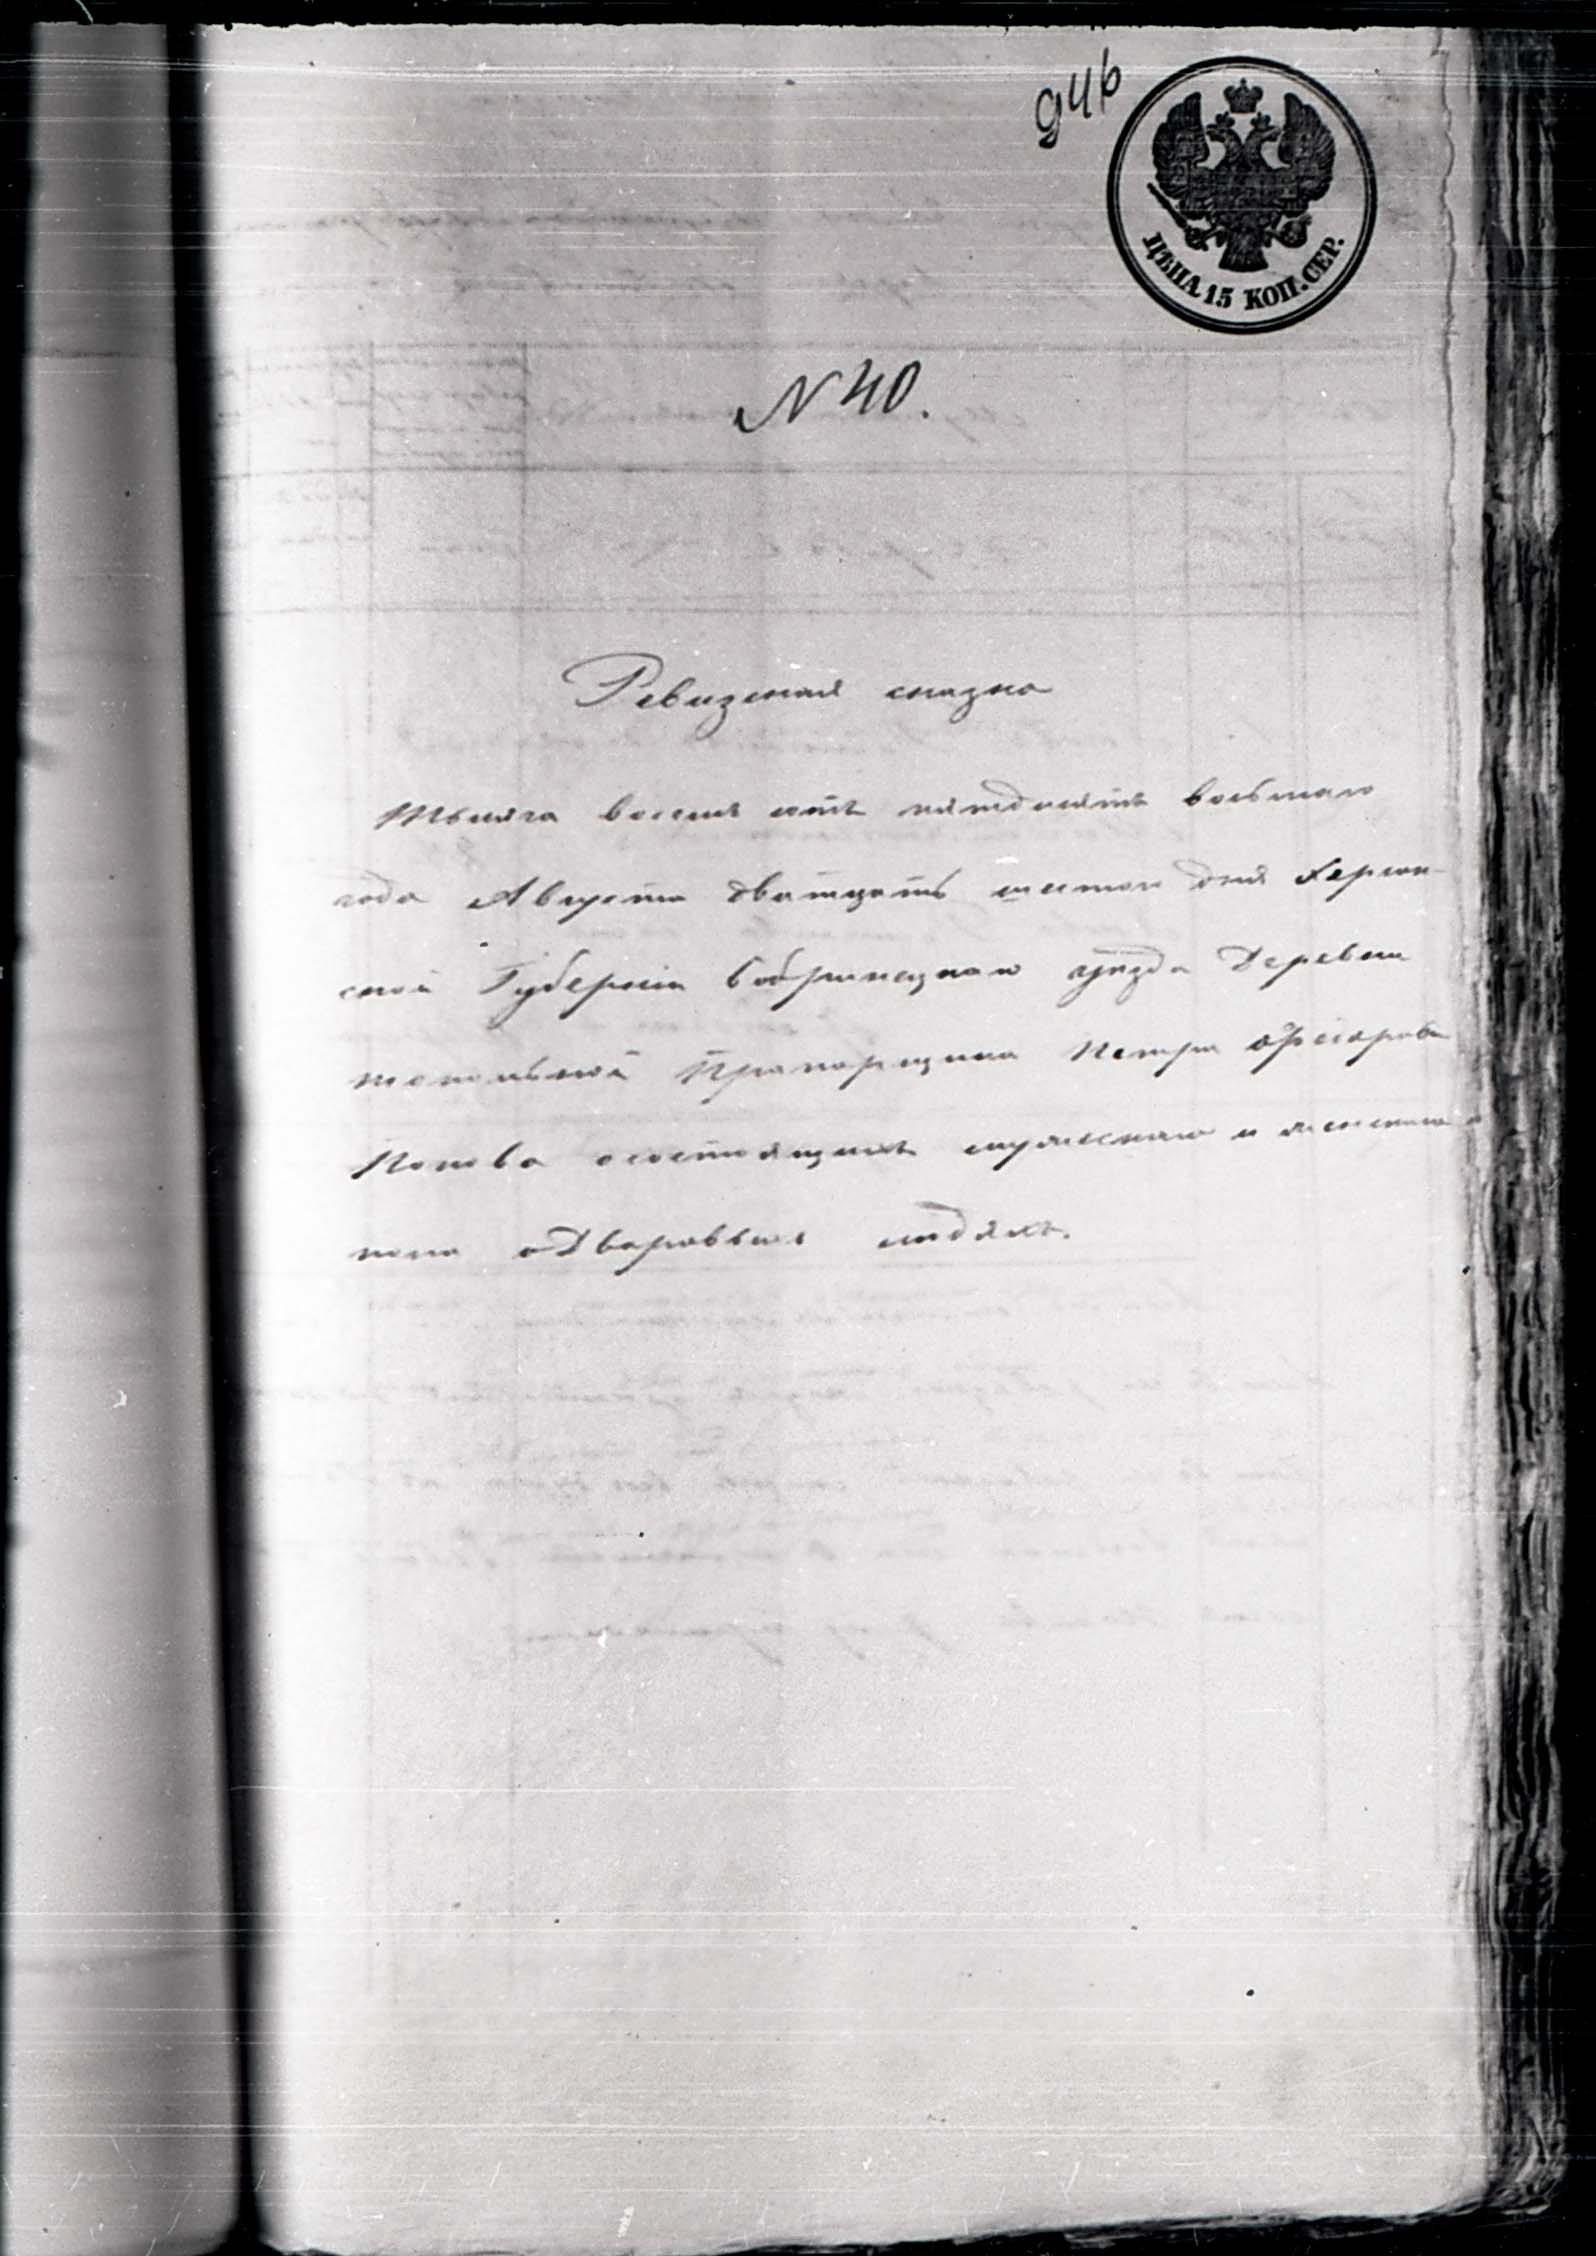 946
ЦѢНА 15 КОП. СЕР.
N 40.
Ревизская сказка
Тысяча восемь сотъ пятдесятъ восьмаго
года Августа дватцать шестого дня Херсон-
ской Губерніи Бобринецкаго уѣзда Деревни
Прапорщика Петра
Попова осостоящихъ мужескаго и женскаго
пола оДворовыхъ людяхъ.